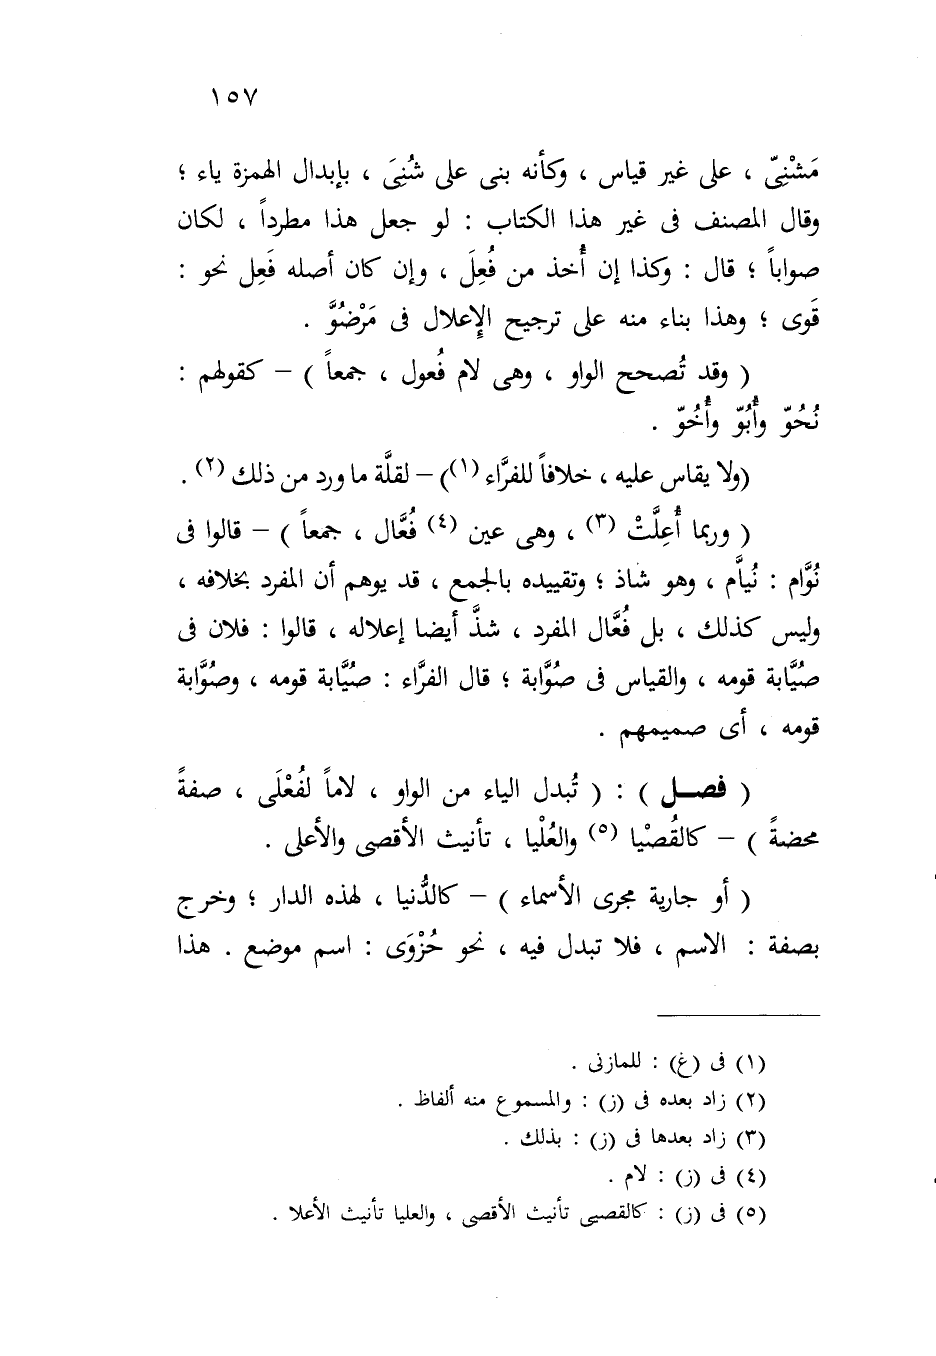 ١٥٧
مَشْنِىّ ، على غير قياس ، وكأنه بنى على شُنِىَ ، بإبدال الهمزة ياء ؛
وقال المصنف فى غير هذا الكتاب : لو جعل هذا مطرداً ، لكان
صواباً ؛ قال : وكذا إن أُخذ من فُعِلَ ، وإن كان أصله فَعِل نحو :
قَوى ؛ وهذا بناء منه على ترجيح الإعلال فى مَرْضُوَّ .
( وقد تُصحح الواو ، وهى لام فُعول ، جمعاً ) – كقولهم :
نُحُوّ وأُبُوّ وأُخُوّ .
(ولا يقاس عليه ، خلافاً للفرَّاء (١)) – لقلَّة ما ورد من ذلك (٢) .
( وربما أُعِلَّتْ (٣) ، وهى عين (٤) فُعَّال ، جمعاً ) – قالوا فى
نُوَّام : نُيَّام ، وهو شاذ ؛ وتقييده بالجمع ، قد يوهم أن المفرد بخلافه ،
وليس كذلك ، بل فُعَّال المفرد ، شذَّ أيضا إعلاله ، قالوا : فلان فى
صُيَّابة قومه ، والقياس فى صُوَّابة ؛ قال الفرَّاء : صُيَّابة قومه ، وصُوَّابة
قومه ، أى صميمهم .
( فصـل ) : ( تُبدل الياء من الواو ، لاماً لفُعْلَى ، صفةً
محضةً ) – كالقُصْيا (٥) والعُلْيا ، تأنيث الأقصى والأعلى .
( أو جارية مجرى الأسماء ) – كالدُّنيا ، لهذه الدار ؛ وخرج
بصفة : الاسم ، فلا تبدل فيه ، نحو حُزْوَى : اسم موضع . هذا
(١) فى (غ) : للمازنى .
(٢) زاد بعده فى (ز) : والمسموع منه ألفاظ .
(٣) زاد بعدها فى (ز) : بذلك .
(٤) فى (ز) : لام .
(٥) فى (ز) : كالقصيى تأنيث الأقصى ، والعليا تأنيث الأعلا .